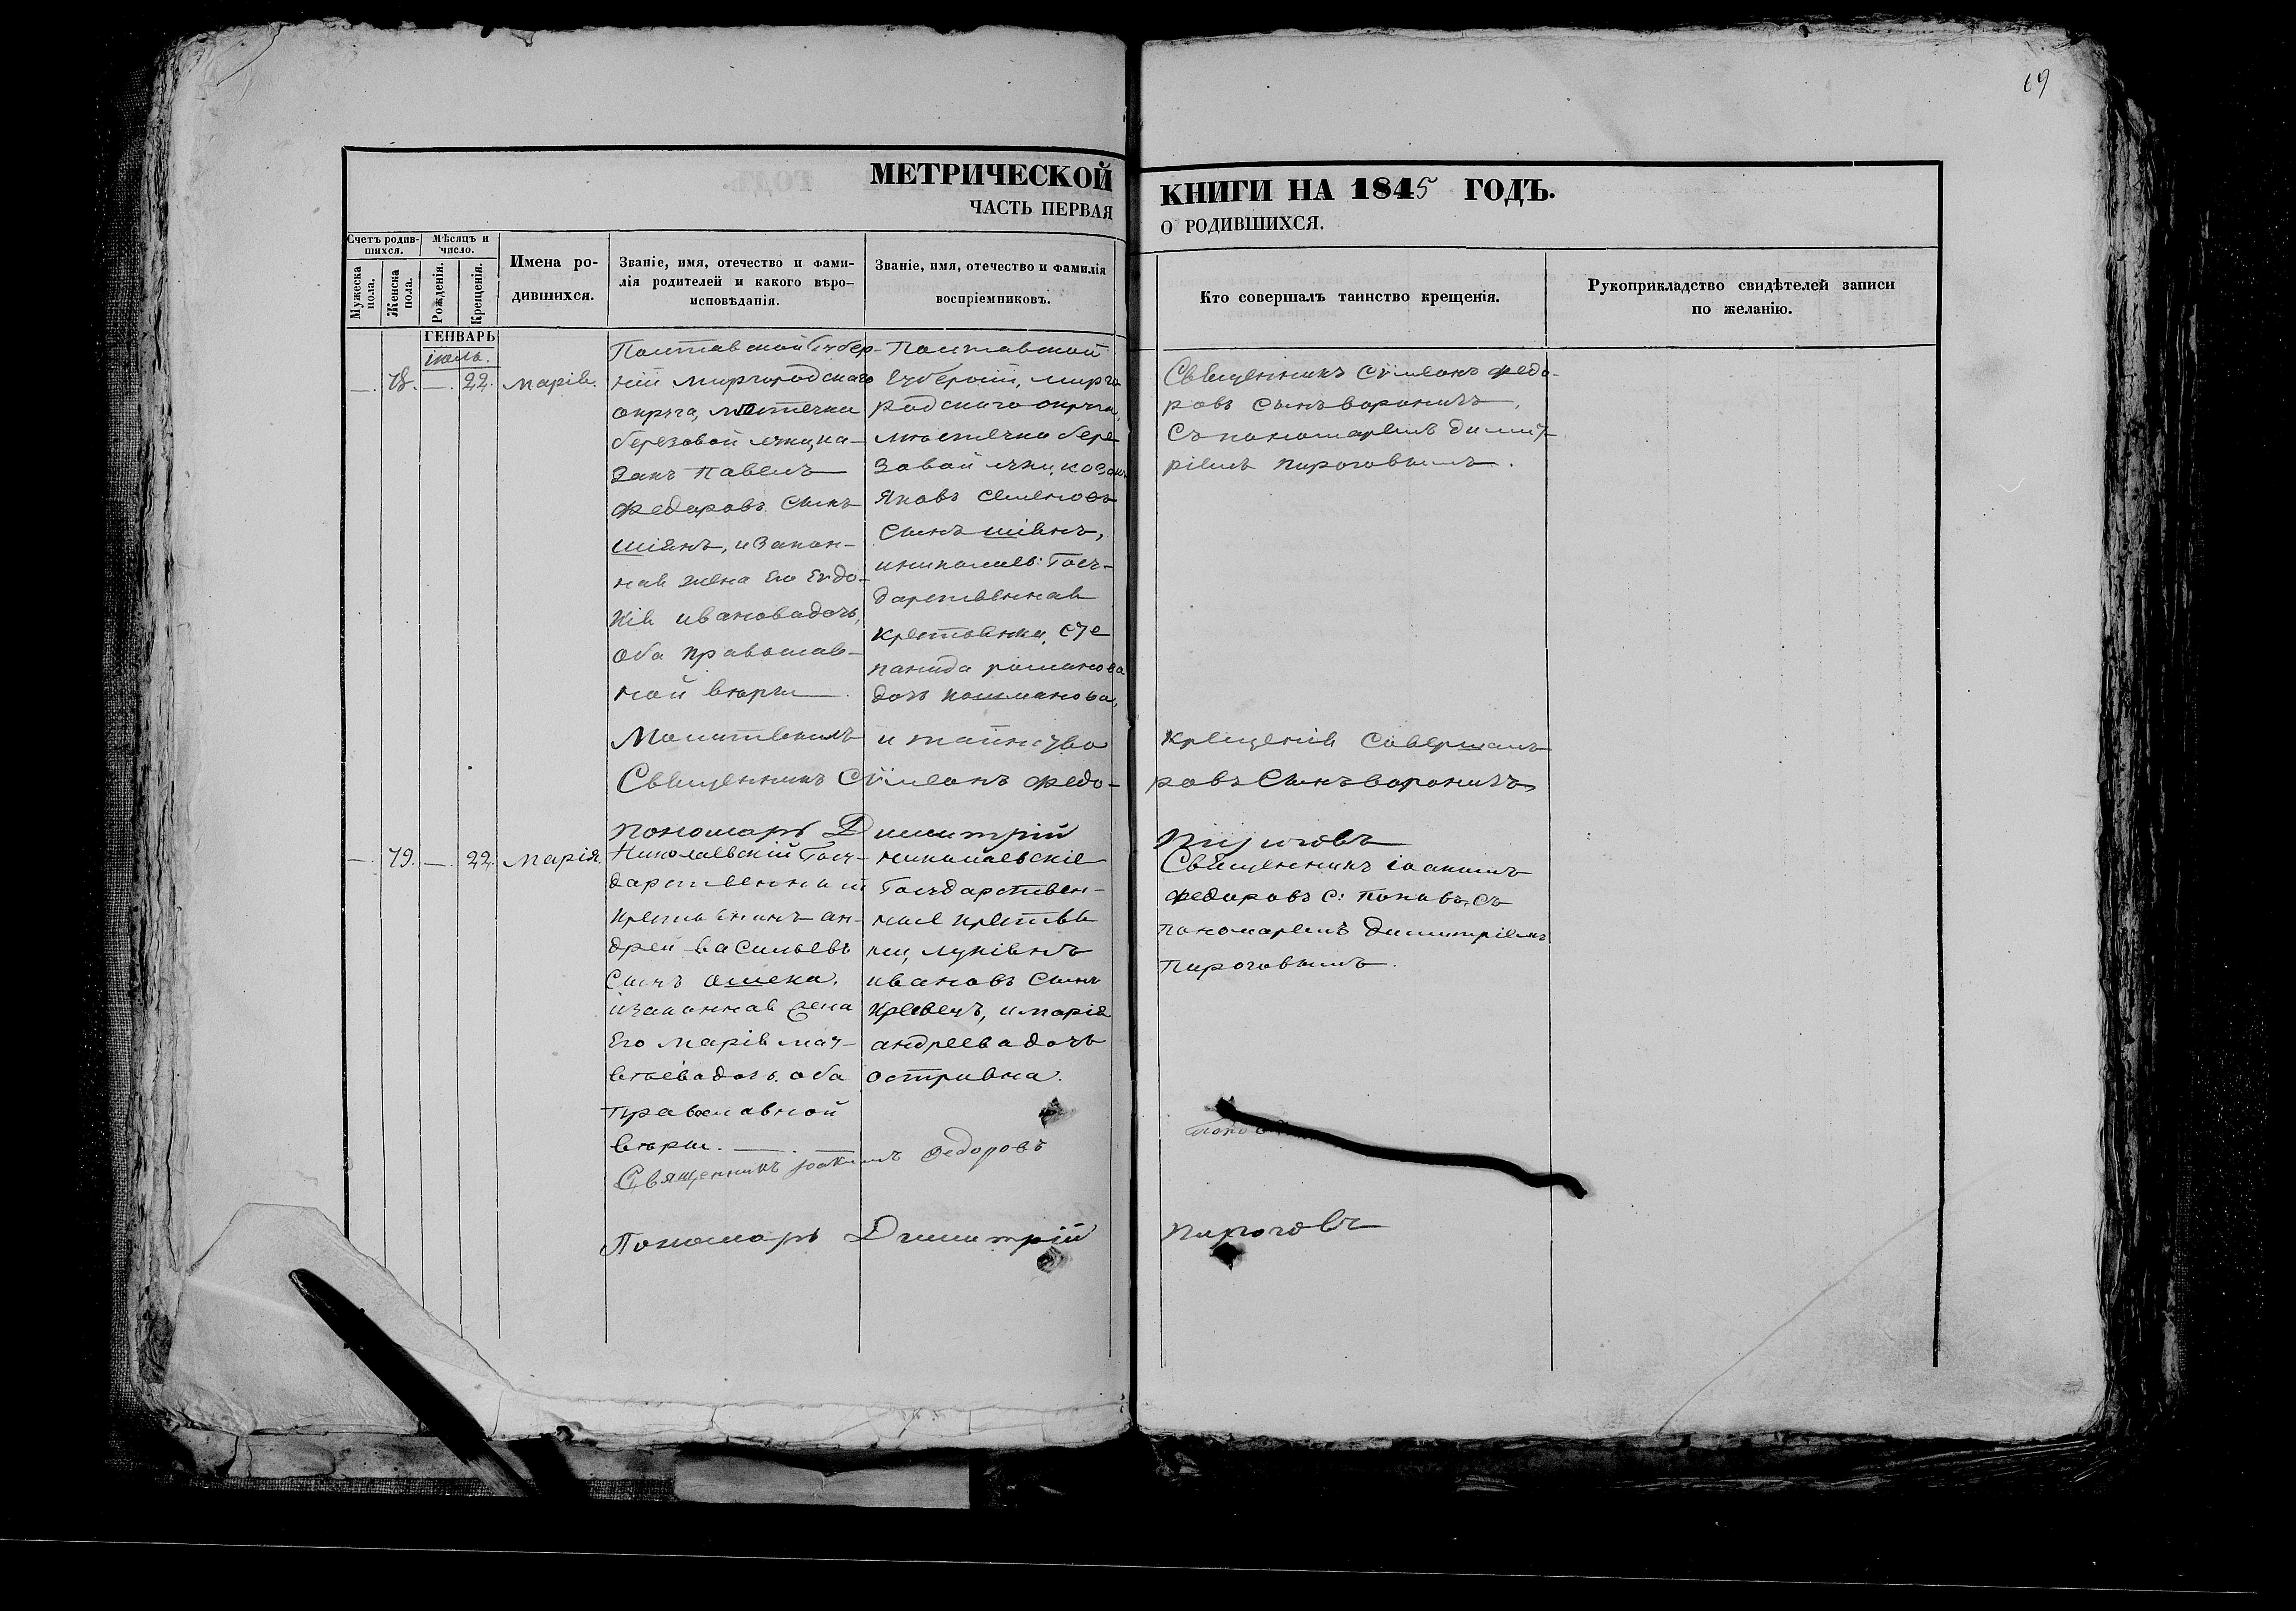 69
МЕТРИЧЕСКОЙ КНИГИ НА 1845 ГОДЪ.
ЧАСТЬ ПЕРВАЯ О РОДИВШИХСЯ.
Счетъ родив-
шихся.
Мужеска
пола.
Женска
пола.
Мѣсяцъ и
число.
Рожденія.
Крещенія.
Имена ро-
дившихся.
Званіе, имя, отечество и фами-
лія родителей и какого вѣро-
исповѣданія.
Званіе, имя, отечество и фамилія
воспріемниковъ.
Кто совершалъ таинство крещенія.
Рукоприкладство свидѣтелей записи
по желанію.
ГЕНВАРЬ
іюль.
—. 78. —. 22. Марія.
Полтавской Губер-
ніи Миргородскаго
округа, местечка
березовой луки, ка-
закъ Павелъ
Федоровъ Сынъ
Шіянъ, и закон-
ная жена Его Евдо-
кія Ивановадочь,
Оба Православ-
ной вѣры.
Полтавской
Губерніи, мирго
родскаго округа,
местечка бере
зовой луки, козакъ
Яковъ Семеновъ
Сынъ шіянъ,
иниколаев: Госу-
дарственная
крестьянка, Сте
панида романова
дочь
Священникъ Сѵмеонъ Федо-
ровъ Сынъ вороничъ,
Съ пономаремъ Димит
ріемъ пироговымъ.
Молитвилъ и таинство крещенія Совершалъ
Священникъ Сѵмеонъ Федо-ровъ Сынъ вороничъ
пономарь Димитрій Пироговъ
—. 79. —. 22. Марія.
Николаевскій Госу-
дарственный
крестьянинъ ан-
дрей васильевъ
Сынъ Ошека,
изаконная жена
Его Марія мат-
вѣевадочь. оба
православной
вѣры.
николаевскіе
Государствен-
ные крестья
не, лукіянъ
ивановъ Сынъ
Кравецъ, имарія
андреева дочь
остривна.
Священникъ іоакимъ
Федоровъ С: поповъ, съ
пономаремъ Димитріемъ
пироговымъ.
Священникъ Іоакимъ Федоровъ Поповъ
Пономарь Димитрій Пироговъ